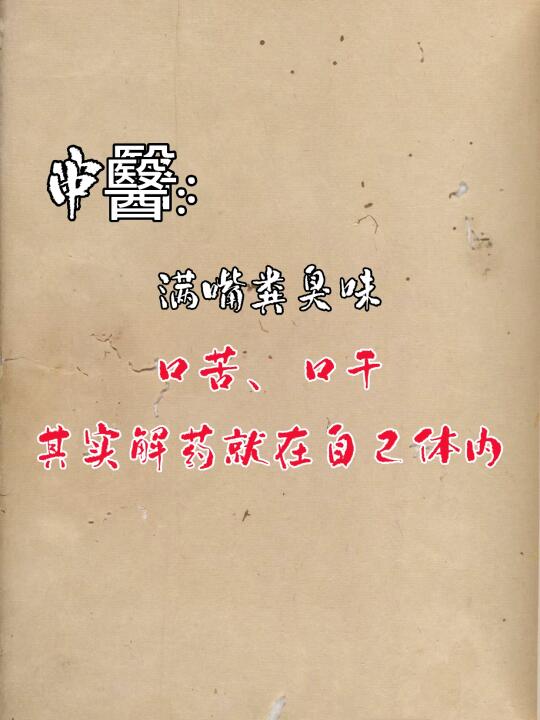 中醫:
满嘴粪臭味
口苦、口干
其实解药就在自己体内